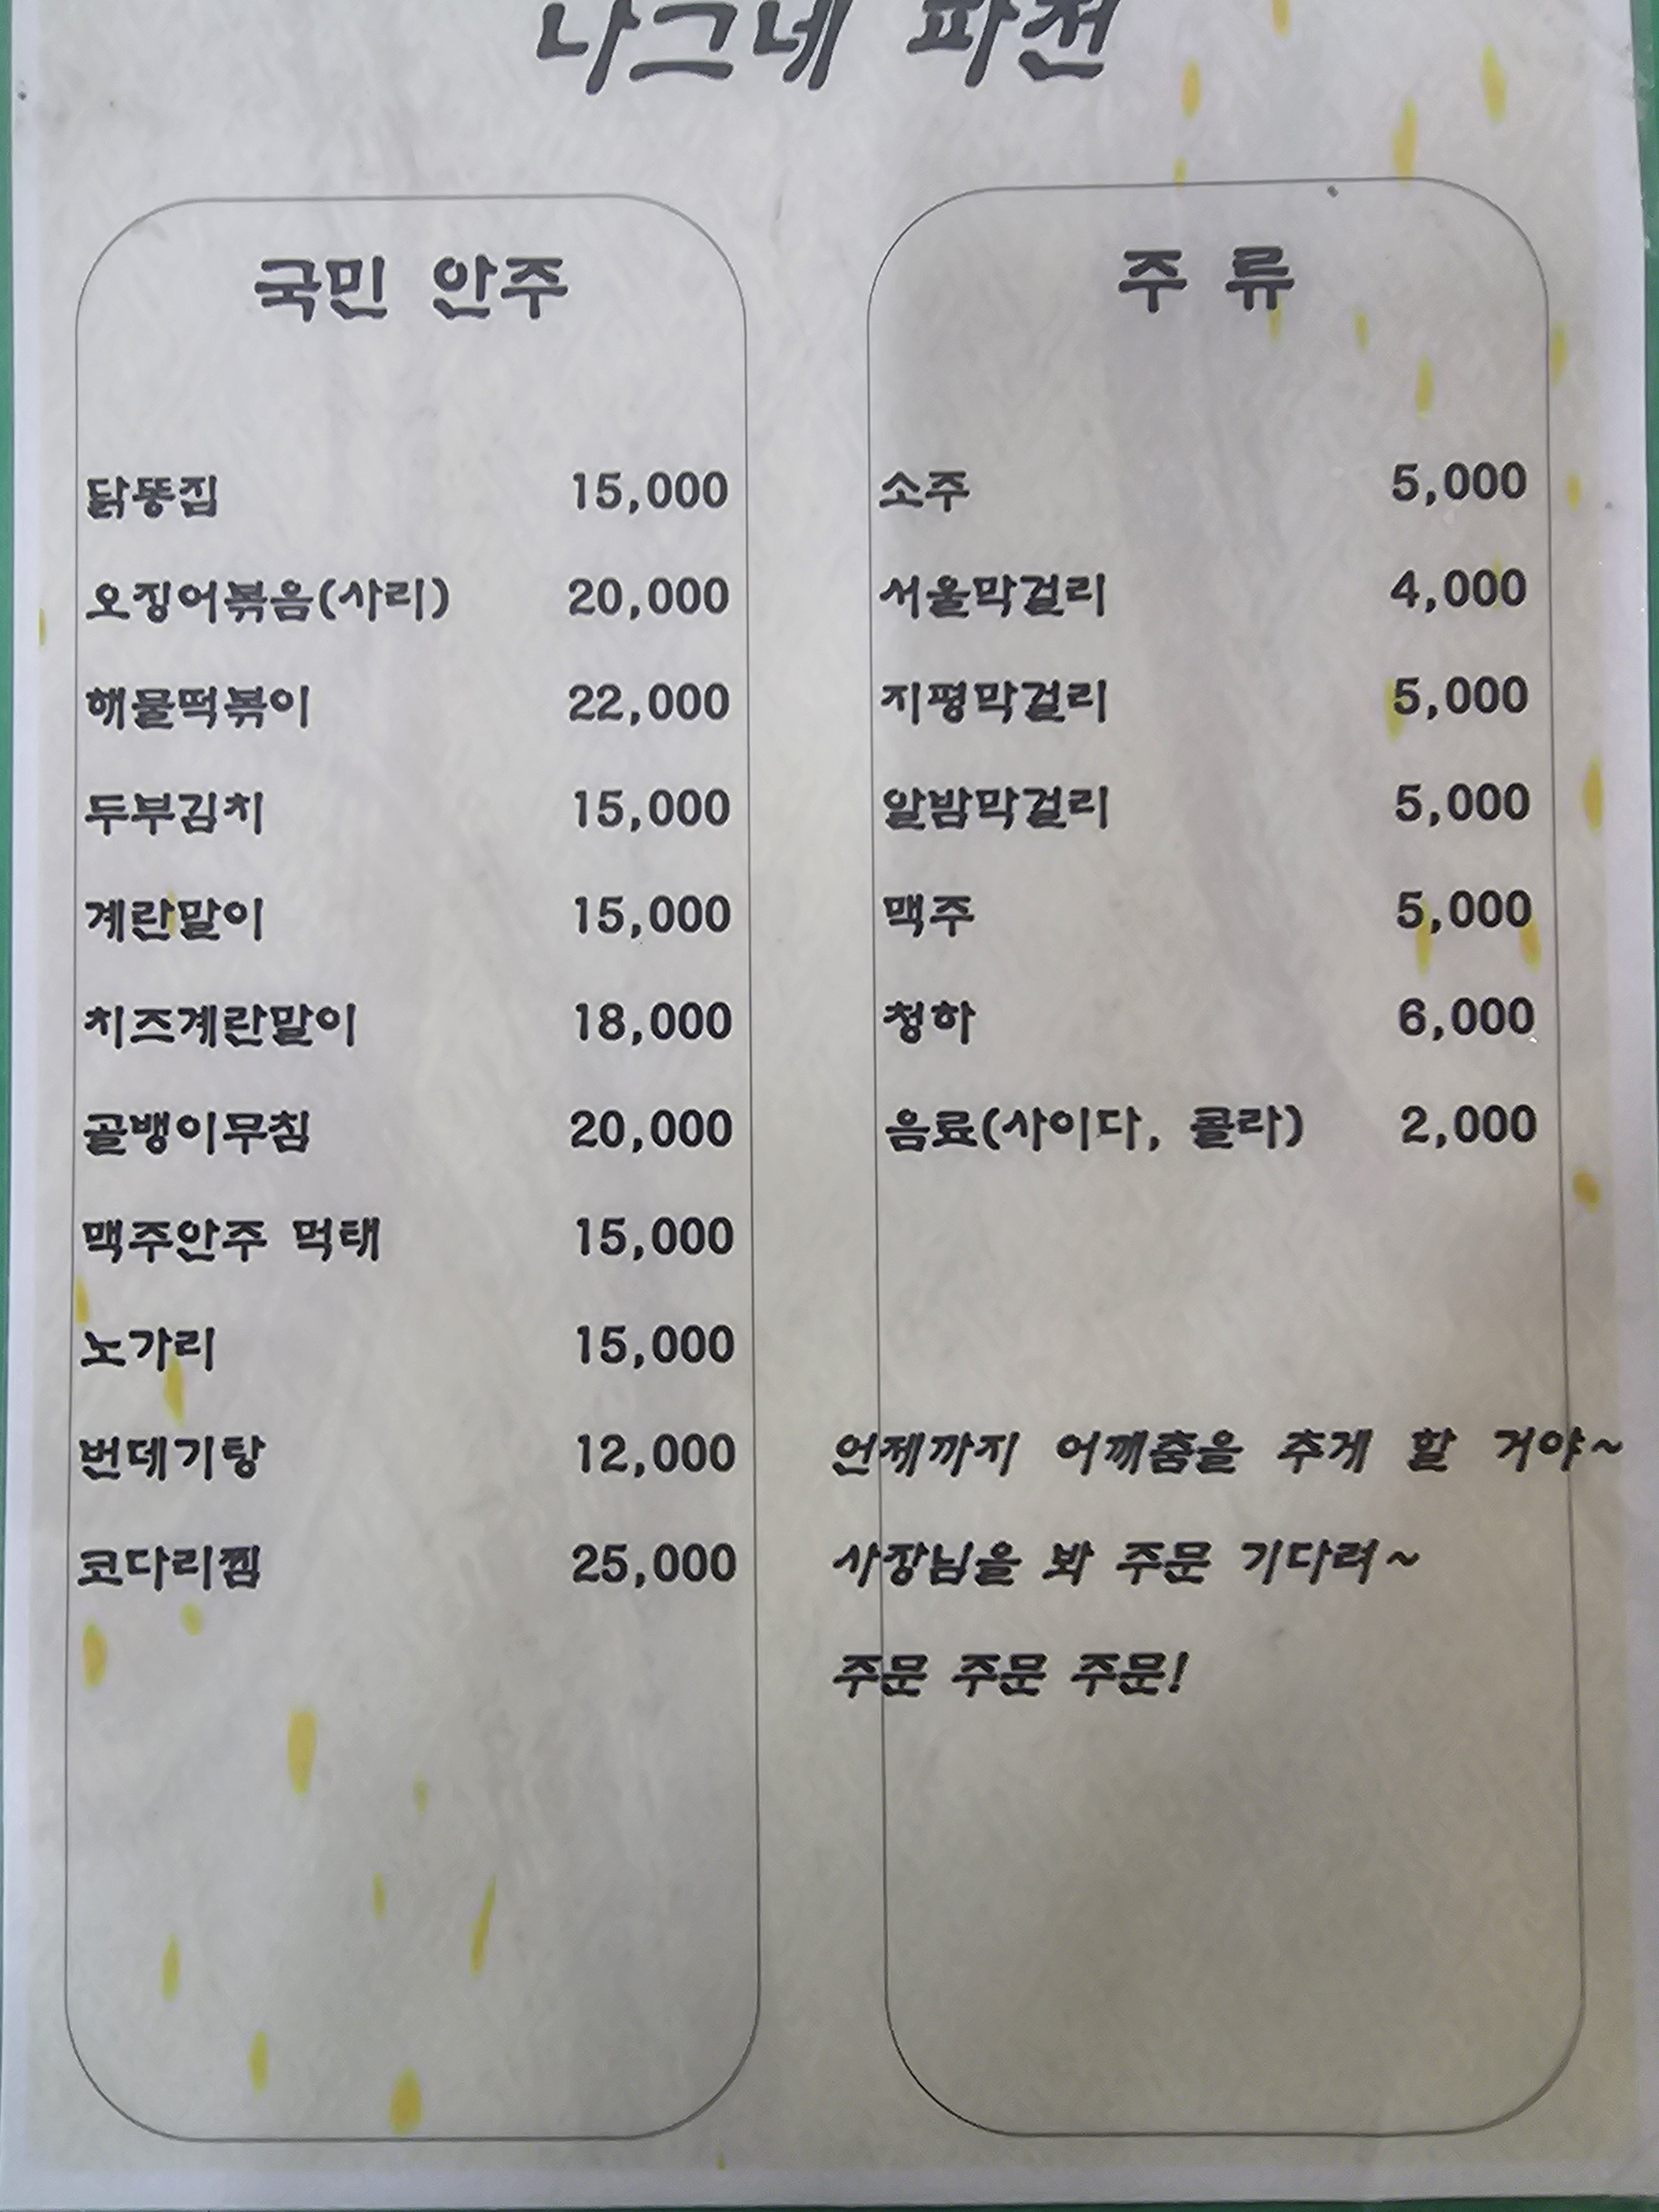 나그네 파전
국민 안주
닭똥집 15,000
오징어볶음(사리) 20,000
해물떡볶이 22,000
두부김치 15,000
계란말이 15,000
치즈계란말이 18,000
골뱅이무침 20,000
맥주안주 먹태 15,000
노가리 15,000
번데기탕 12,000
코다리찜 25,000
주 류
소주 5,000
서울막걸리 4,000
지평막걸리 5,000
알밤막걸리 5,000
맥주 5,000
청하 6,000
음료(사이다, 콜라) 2,000
언제까지 어깨춤을 추게 할 거야~
사장님을 봐 주문 기다려~
주문 주문 주문!